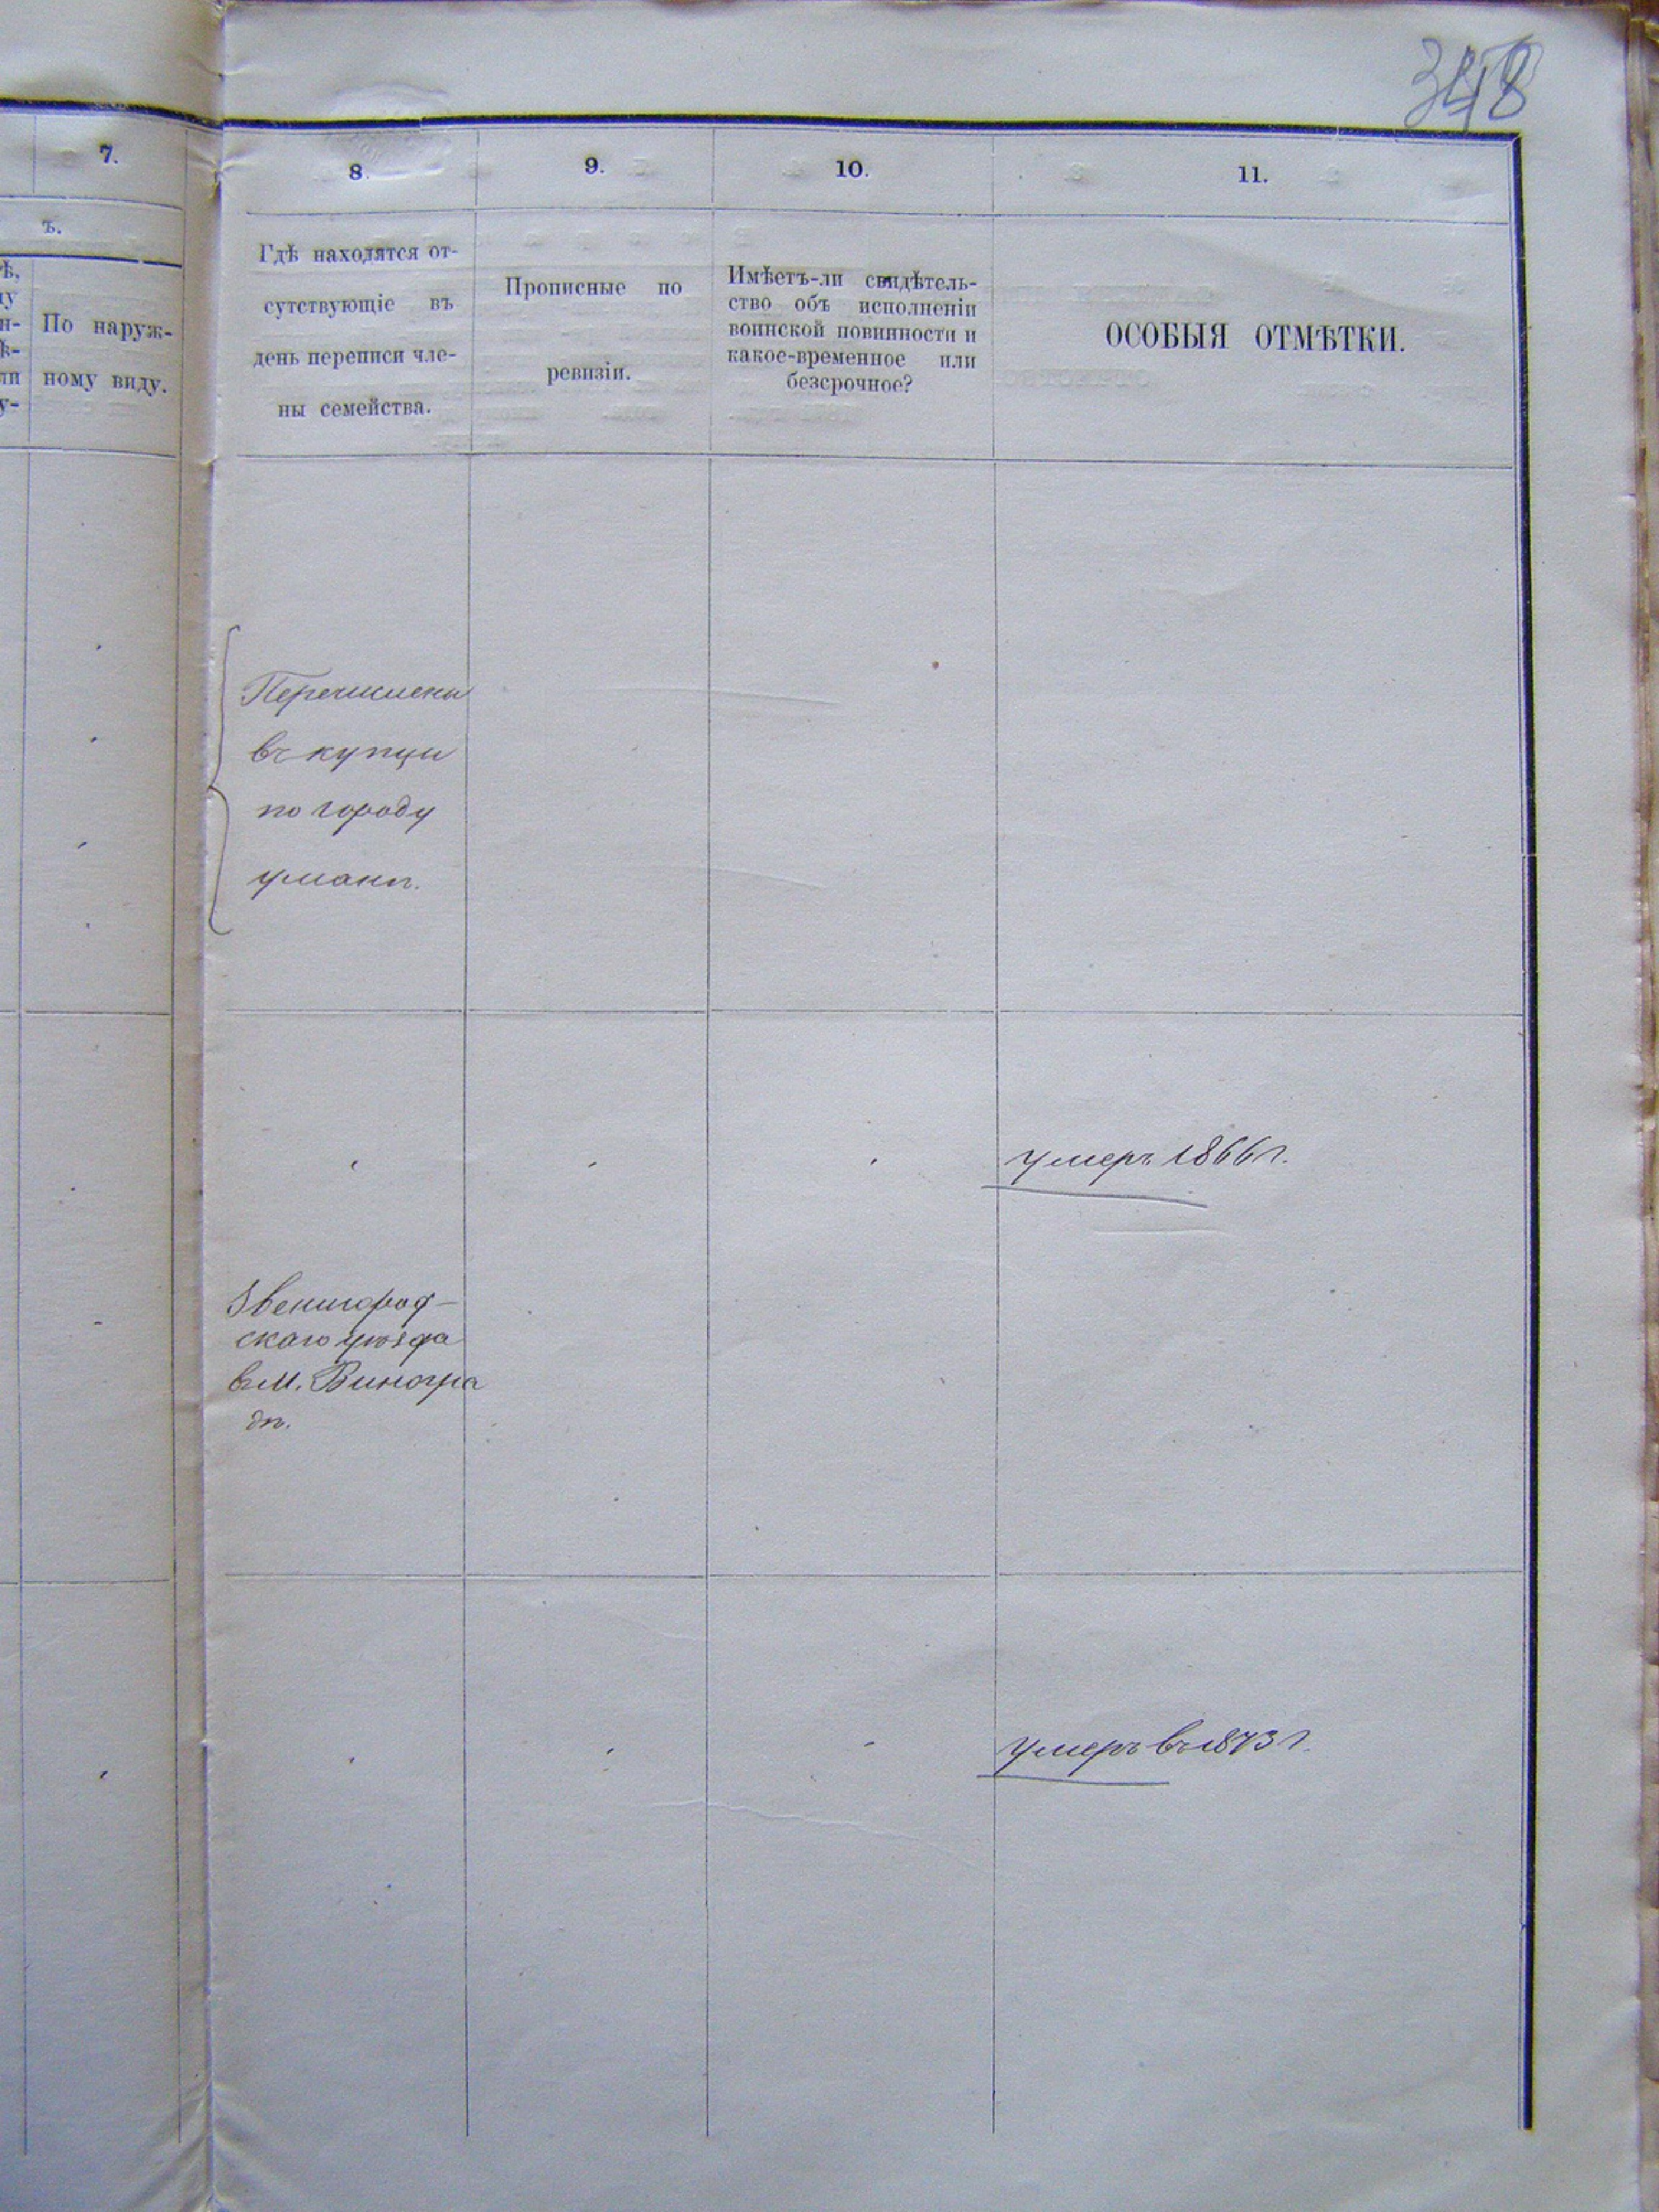 348
7.
8.
9.
10.
11.
ъ.
По наруж-
ному виду.
Гдѣ находятся от-
сутствующіе въ
день переписи чле-
ны семейства.
Прописные по
ревизіи.
Имѣетъ-ли свидѣтель-
ство объ исполненіи
воинской повинности и
какое-временное или
безсрочное?
ОСОБЫЯ ОТМѢТКИ.
Перечислены
въ купцы
по городу
умани.
умеръ 1866 г.
Звенигород-
скаго уѣзда
въ м. Виногра
дѣ.
умеръ въ 1873 г.